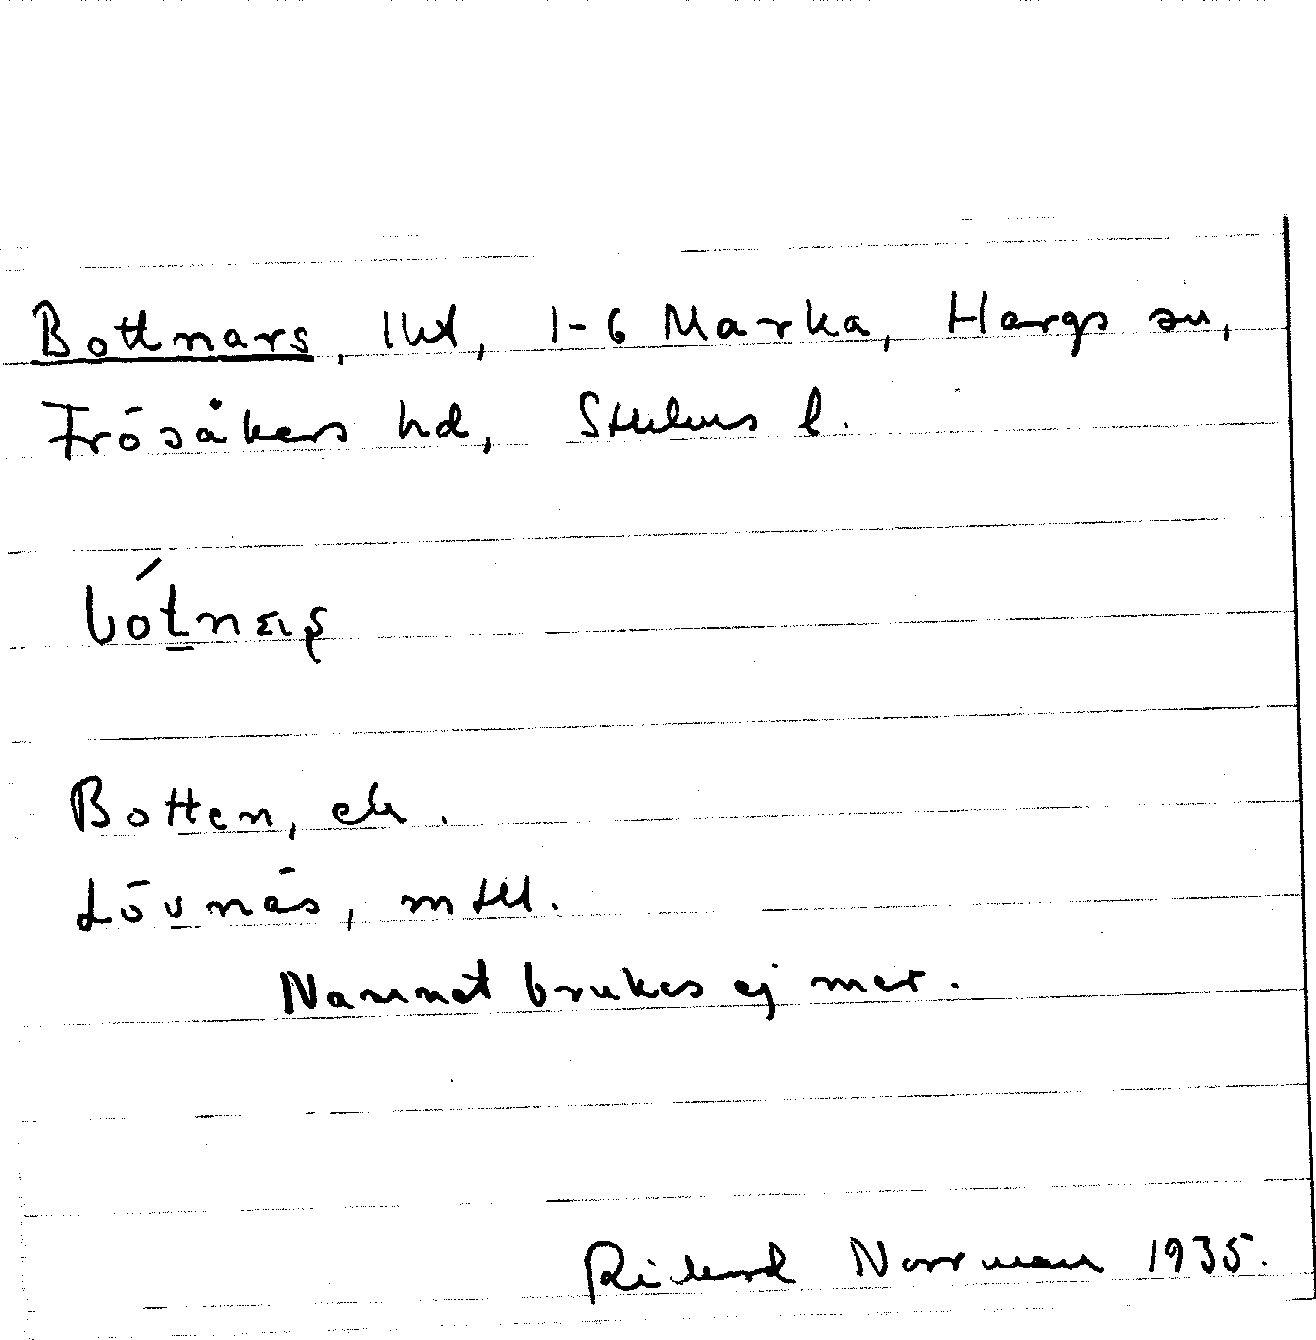 Bottnars, lht, 1-6 Marka, Hargs sn,
Frösåkers hd, Sthlms l.
Botten, ek.
Lövnäs, mtll.
Namnet brukas ej mer.
Rickard Norrman 1935.